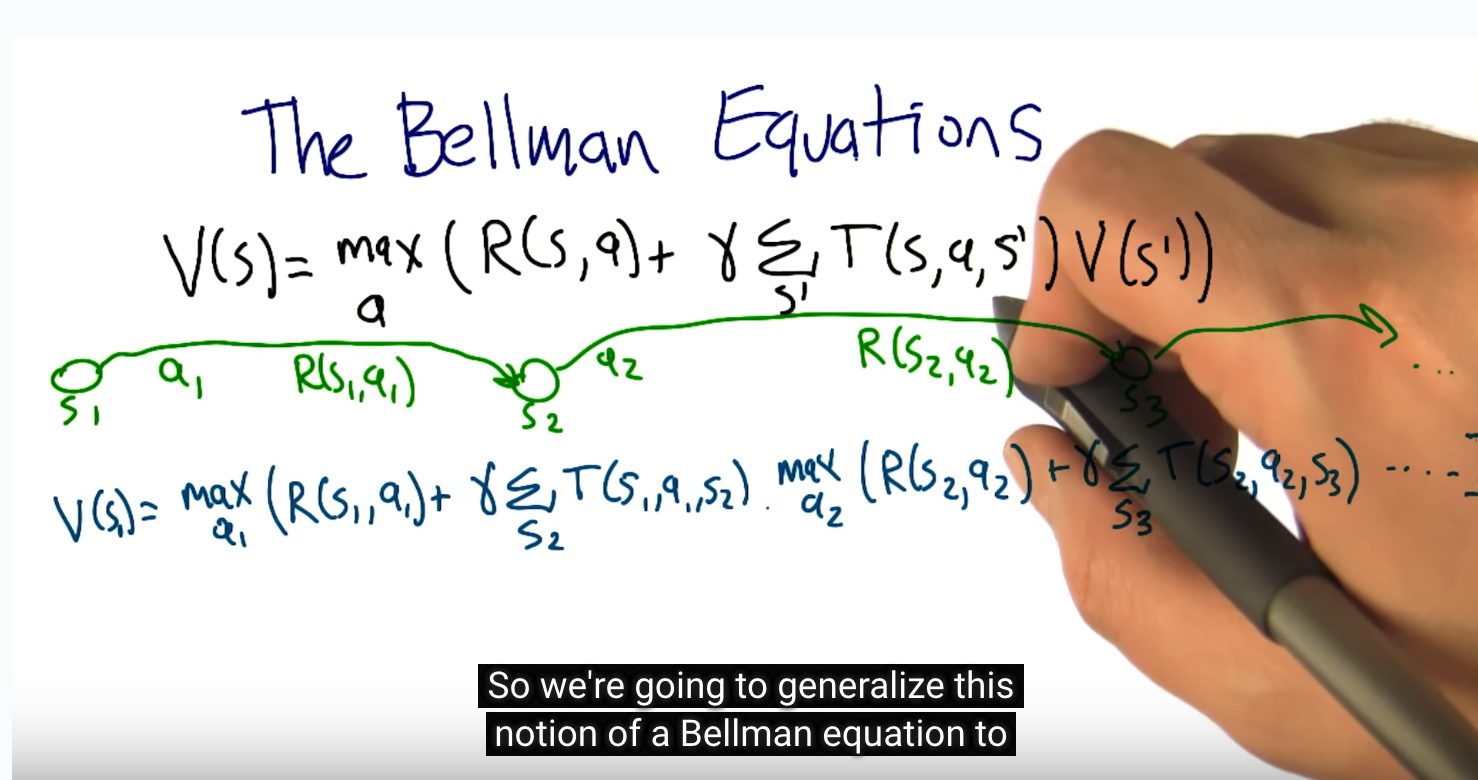 The Bellman Equations
V(s)= max (R(s,a)+ γ Σ T(s,a,s')V(s'))
a s'
a₁ R(s₁,a₁) a₂ R(s₂,a₂) ...
s₁ s₂ s₃
V(s₁)= max (R(s₁,a₁)+ γ Σ T(s₁,a₁,s₂) · max (R(s₂,a₂)+γ Σ T(s₂,a₂,s₃) ....
a₁ s₂ a₂ s₃
So we're going to generalize this
notion of a Bellman equation to